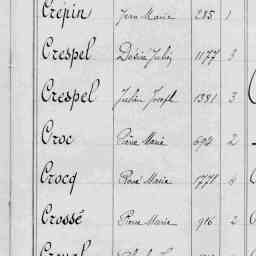 Crépin Jean Marie 285 1
Crespel Désiré Julien 1177 3
Crespel Julien Joseph 1381 3
Croc Pierre Marie 692 2
Crocq René Marie 1771 4
Crossé Pierre Marie 916 2